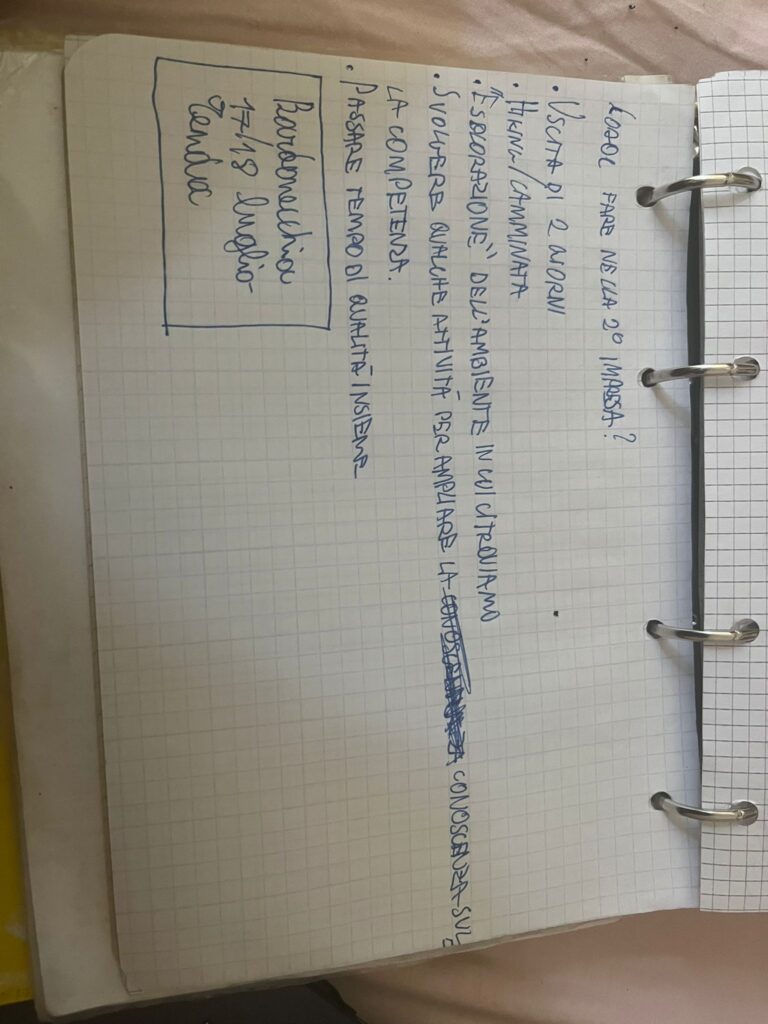 COSOL FARE NELLA 2° IMPRESA?
• USCITA DI 2 GIORNI
• HIKING/CAMMINATA
• "ESPLORAZIONE" DELL'AMBIENTE IN CUI CI TROVIAMO
• SVOLGERE QUALCHE ATTIVITÀ PER AMPLIARE LA CONOSCENZA SUL
LA COMPETENZA.
• PASSARE TEMPO DI QUALITÀ INSIEME
Bardonecchia
17/18 luglio
Tenda